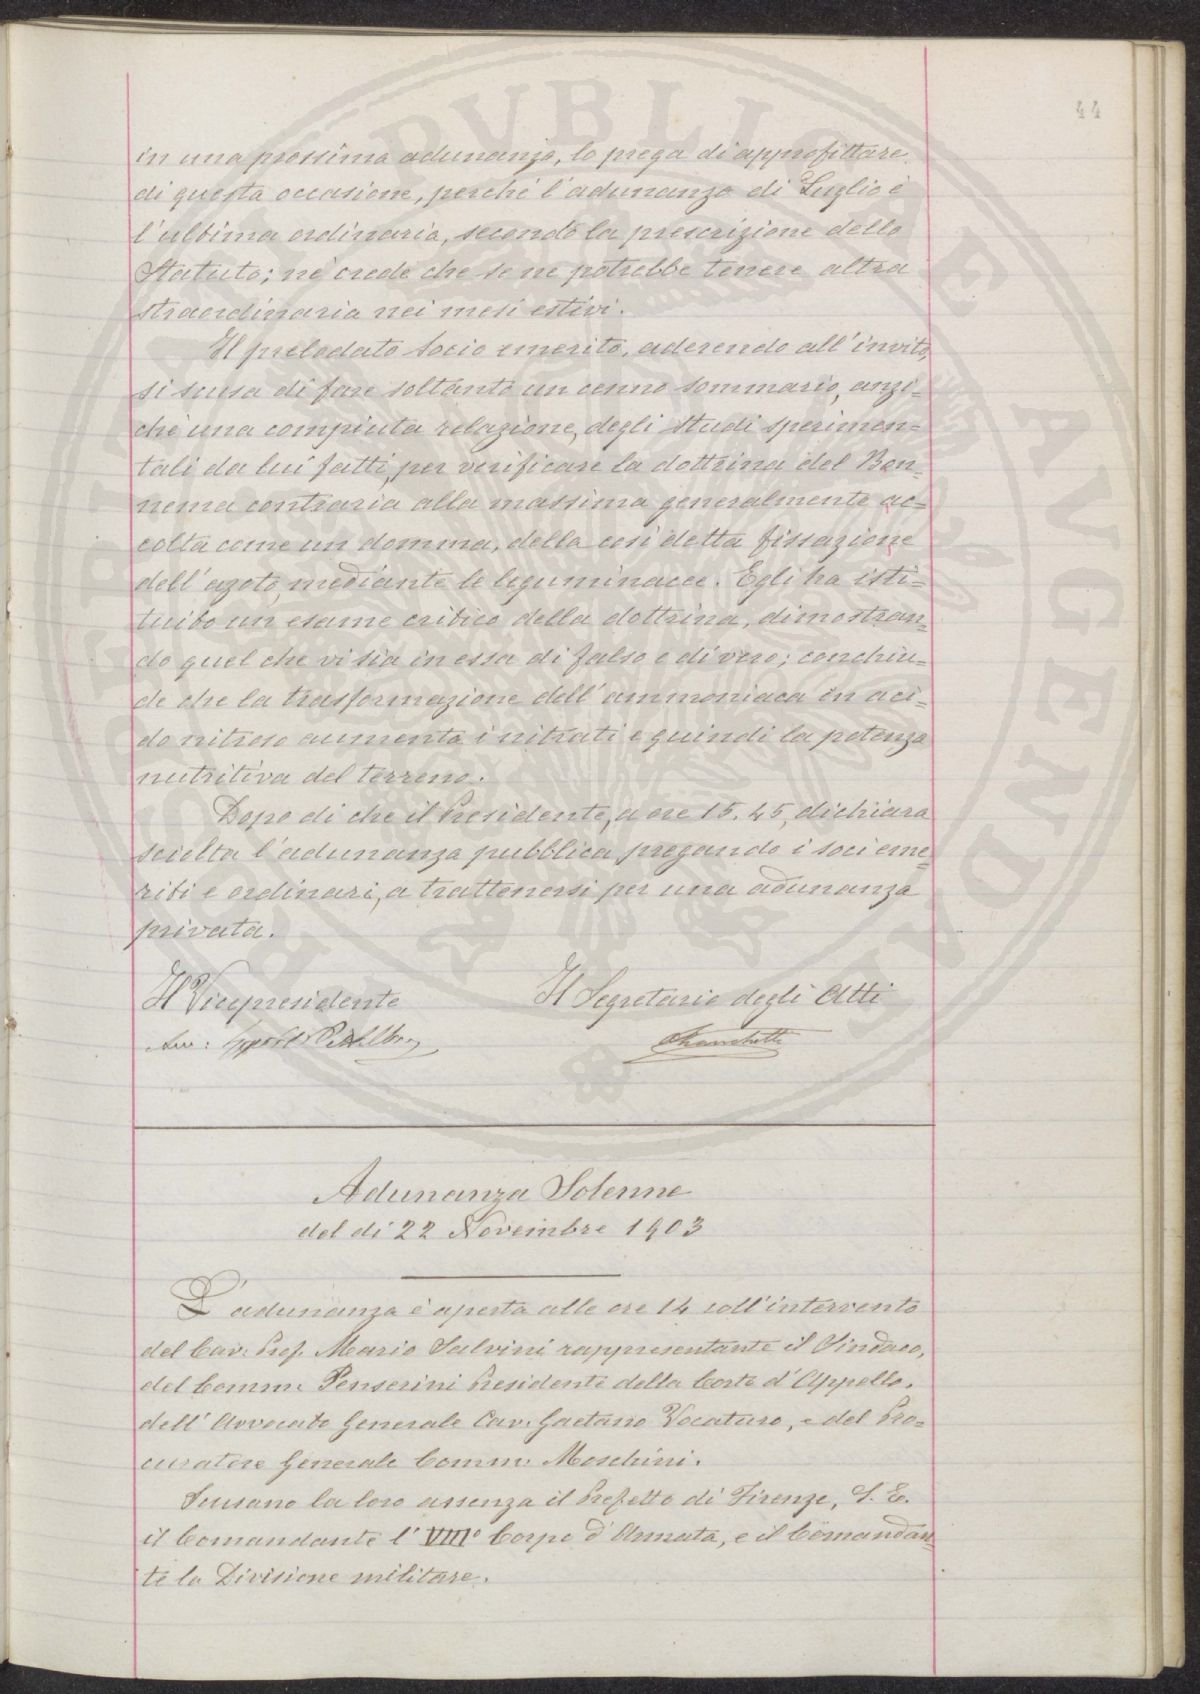 44
in una prossima adunanza, lo prega di approfittare
di questa occasione, perché l'adunanza di Luglio è
l'ultima ordinaria, secondo la prescrizione dello
Statuto; né crede che se ne potrebbe tenere altra
straordinaria nei mesi estivi.
Il prelodato Socio emerito, aderendo all'invito,
si scusa di fare soltanto un cenno sommario, anzi=
chè una compiuta relazione, degli studi sperimen=
tali da lui fatti, per verificare la dottrina del Bon=
nema contraria alla massima generalmente ac=
colta come un domma, della così detta fissazione
dell'azoto, mediante le leguminacee. Egli ha isti=
tuito un esame critico della dottrina, dimostran=
do quel che vi sia in essa di falso e di vero; conchiu=
de che la trasformazione dell'ammoniaca in aci=
do nitroso aumenta i nitrati e quindi la potenza
nutritiva del terreno.
Dopo di che il Presidente, a ore 15.45, dichiara
sciolta l'adunanza pubblica pregando i soci eme=
riti e ordinari, a trattenersi per una adunanza
privata.
Il Vicepresidente
Il Segretario degli Atti
Adunanza Solenne
del dì 22 Novembre 1903
L'adunanza è aperta alle ore 14 coll'intervento
del Cav. Prof. Mario Salvini rappresentante il Sindaco,
del Comm: Penserini Presidente della Corte d'Appello,
dell'Avvocato Generale Cav. Gaetano Vocaturo, e del Pro=
curatore Generale Comm: Moschini.
Scusano la loro assenza il Prefetto di Firenze, S. E.
il Comandante l'VIII° Corpo d'Armata, e il Comandan=
te la Divisione militare.
PVBLICAE
AVGENDAE